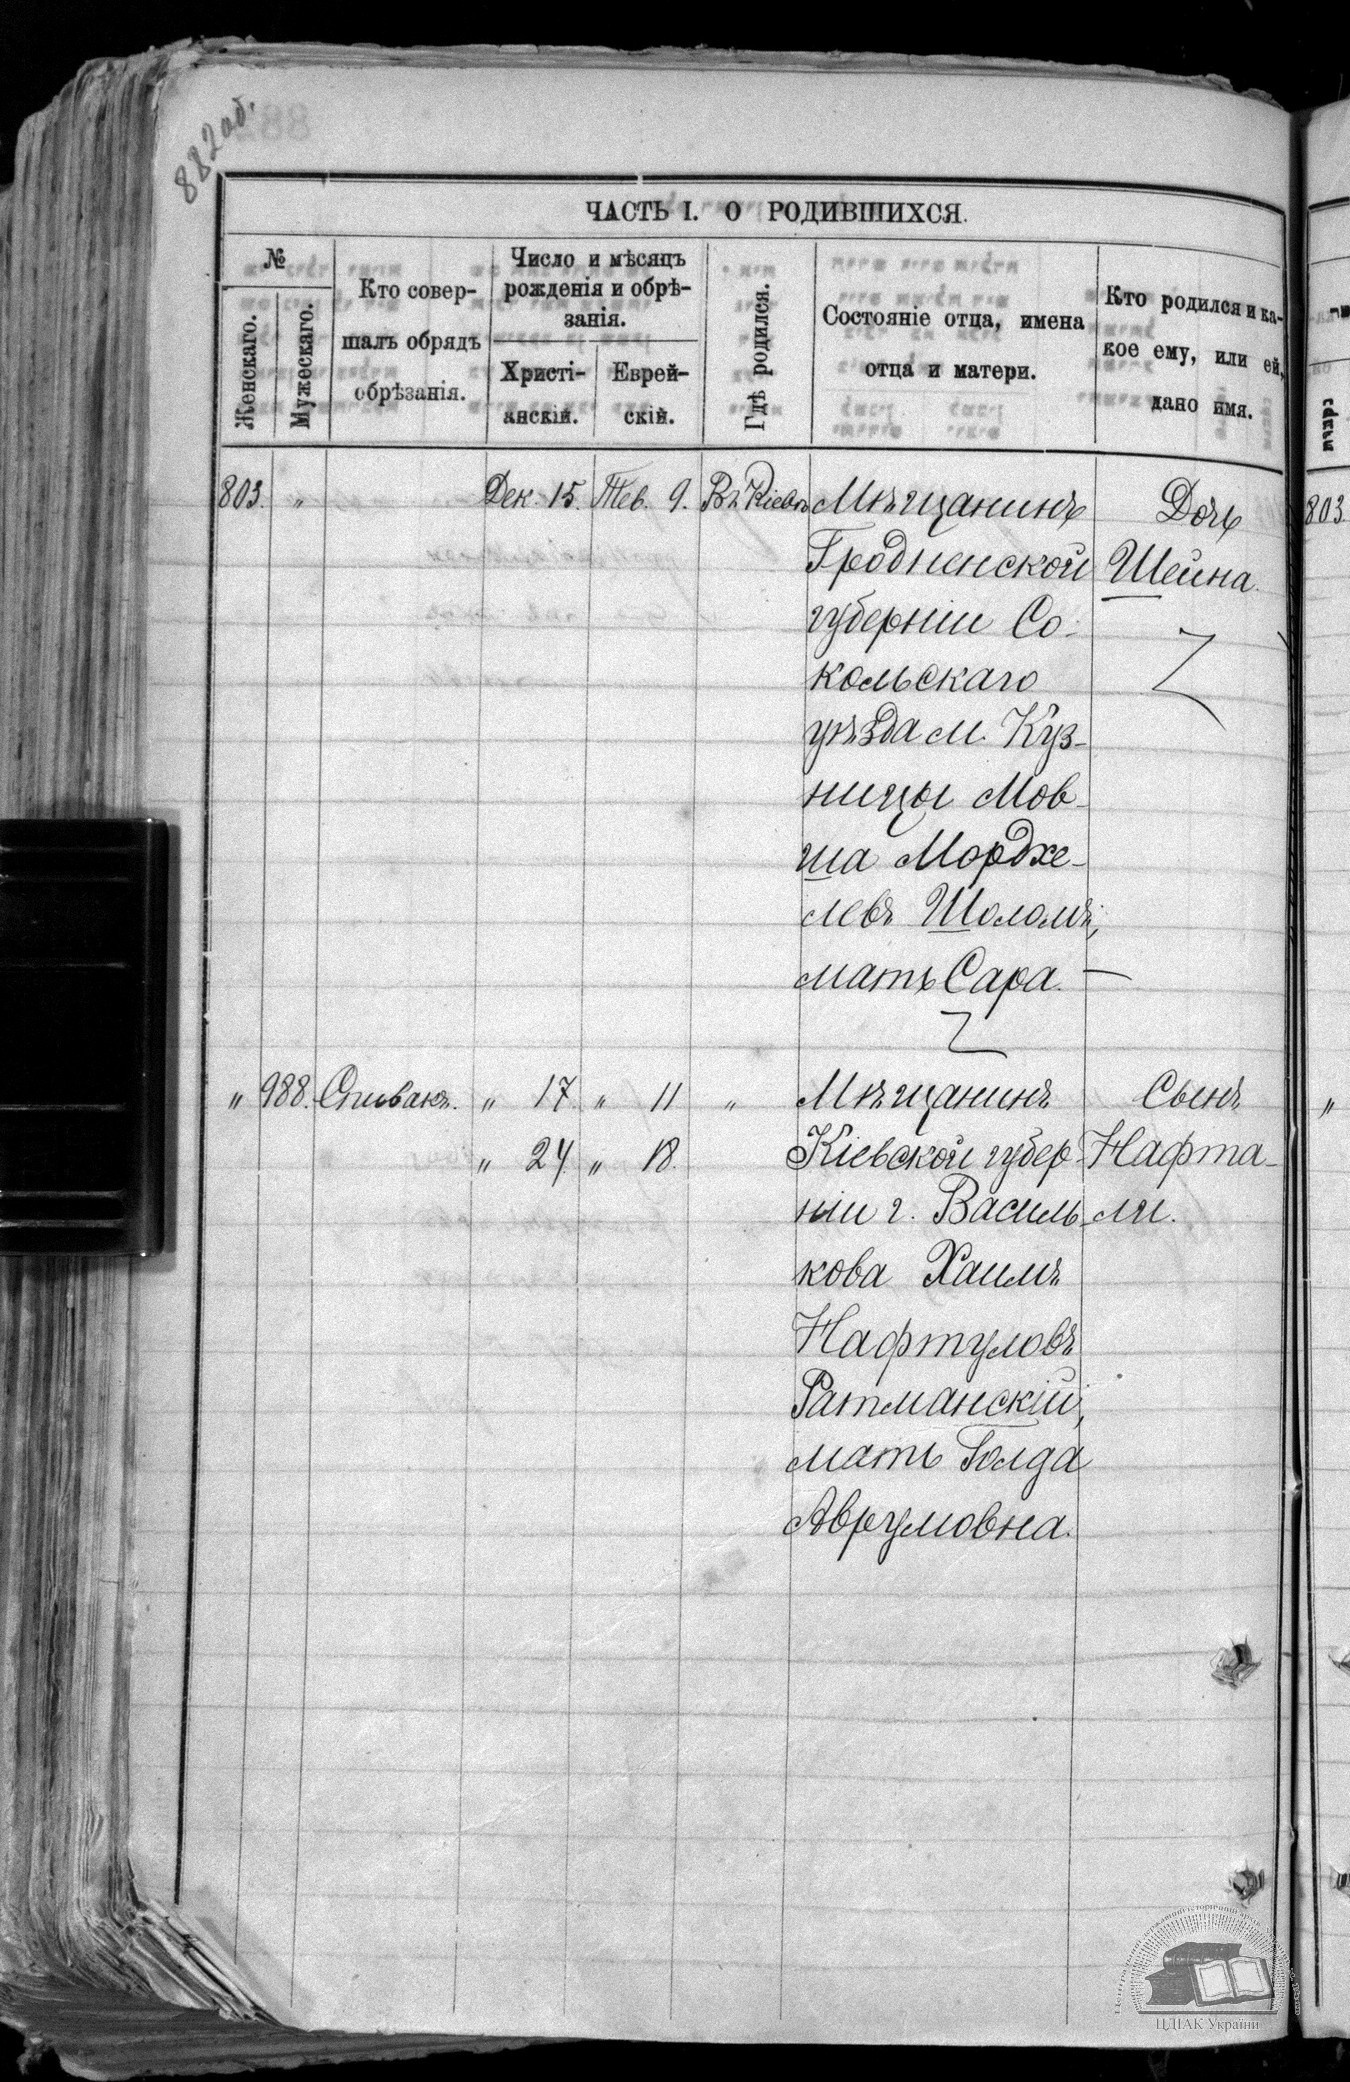 882 об.
ЧАСТЬ I. О РОДИВШИХСЯ.
№
Женскаго.
Мужескаго.
Кто совер-
шалъ обрядъ
обрѣзанія.
Число и мѣсяцъ
рожденія и обрѣ-
занія.
Христі-
анскій.
Еврей-
скій.
Гдѣ родился.
Состояніе отца, имена
отца и матери.
Кто родился и ка-
кое ему, или ей,
дано имя.
803. " Дек. 15. Тев. 9. Въ Кіевѣ Мѣщанинъ Дочь
Гродненской Шейна.
губерніи Со-
кольскаго
уѣзда м. Куз-
ницы Мов-
ша Мордхе-
левъ Шоломъ,
мать Сара. —
" 988. Спивакъ. " 17. " 11 " Мѣщанинъ Сынъ
" 24 " 18. Кіевской губер- Нафта-
ніи г. Василь- ли.
кова Хаимъ
Нафтуловъ
Ратманскій,
мать Голда
Аврумовна.
803.
"
ЦДІАК України